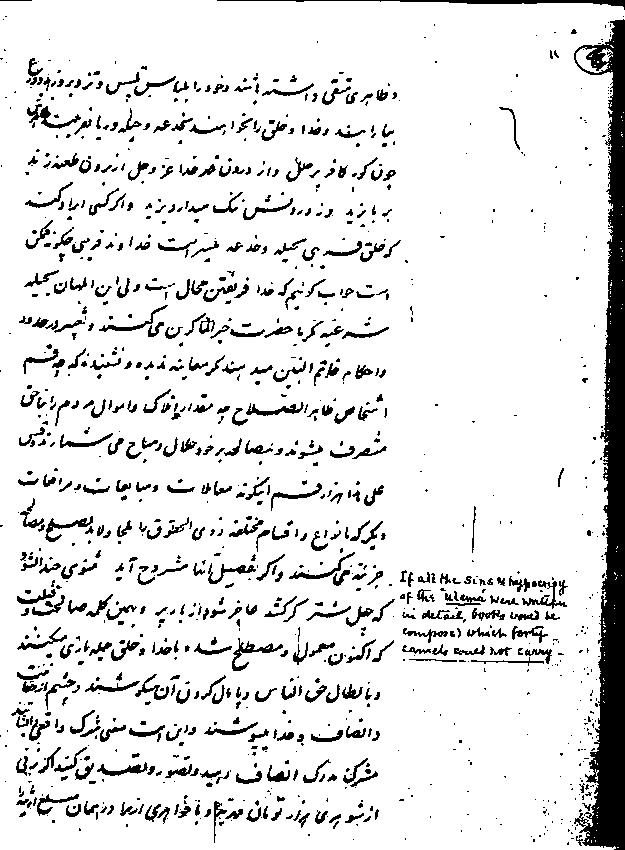 ۱۱
و ظاهری متقی داشته باشند و خود را بلباس تلبیس و تزویر و زهد و ورع
بیارایند و خدا و خلق را بخواهند بخدعه و حیله و ریا بفریبند
چون گور کافر پر حلل واز درون قهر خدا عز و جل از برون طعنه زند
بر بایزید وز درونش ننگ میدارد یزید و اگر کسی ایراد کند
که خلق فریبی بحیله و خدعه میسر است خداوند فریبی چگونه ممکن
است جواب گوئیم که خدا فریفتن محال است ولی این ابلهان بحیله
شرعیه که با حضرت خیر الماکرین می کنند و تغییر در حدود
و احکام خاتم النبین میدهند مگر معاینه ندیده و نشنیده که چه قسم
اشخاص ظاهر الصلاح چه مقدار املاک و اموال مردم را بناحق
متصرف میشوند و بمصالحه بر خود حلال و مباح می شمارند و قس
علی هذا هزار قسم اینگونه معاملات و مبایعات و مرافعات
دیگر که بانواع و اقسام مختلفه ذوی الحقوق را
جزئیه می کنند و اگر تفصیل آنها مشروح آید مثنوی صد
که چل شتر گر کشد عاجز شود از بار پر و بهمین کلمه
که اکنون معمول و مصطلح شده با خدا و خلق حیله بازی میکنند
و بابطال حق الناس و پامال کردن آن میکوشند و چشم از
و انصاف و خدا میپوشند و این است معنی شرک واقعی
مشرک مدرک انصاف دهید و تصور و تصدیق کنید اگر زنی
از شوهری هزار تومان و یا خواهری از برادر همان مبلغ
If all the sins & hypocrisy
of the 'ulema were written
in detail, books would be
composed which forty
camels could not carry.